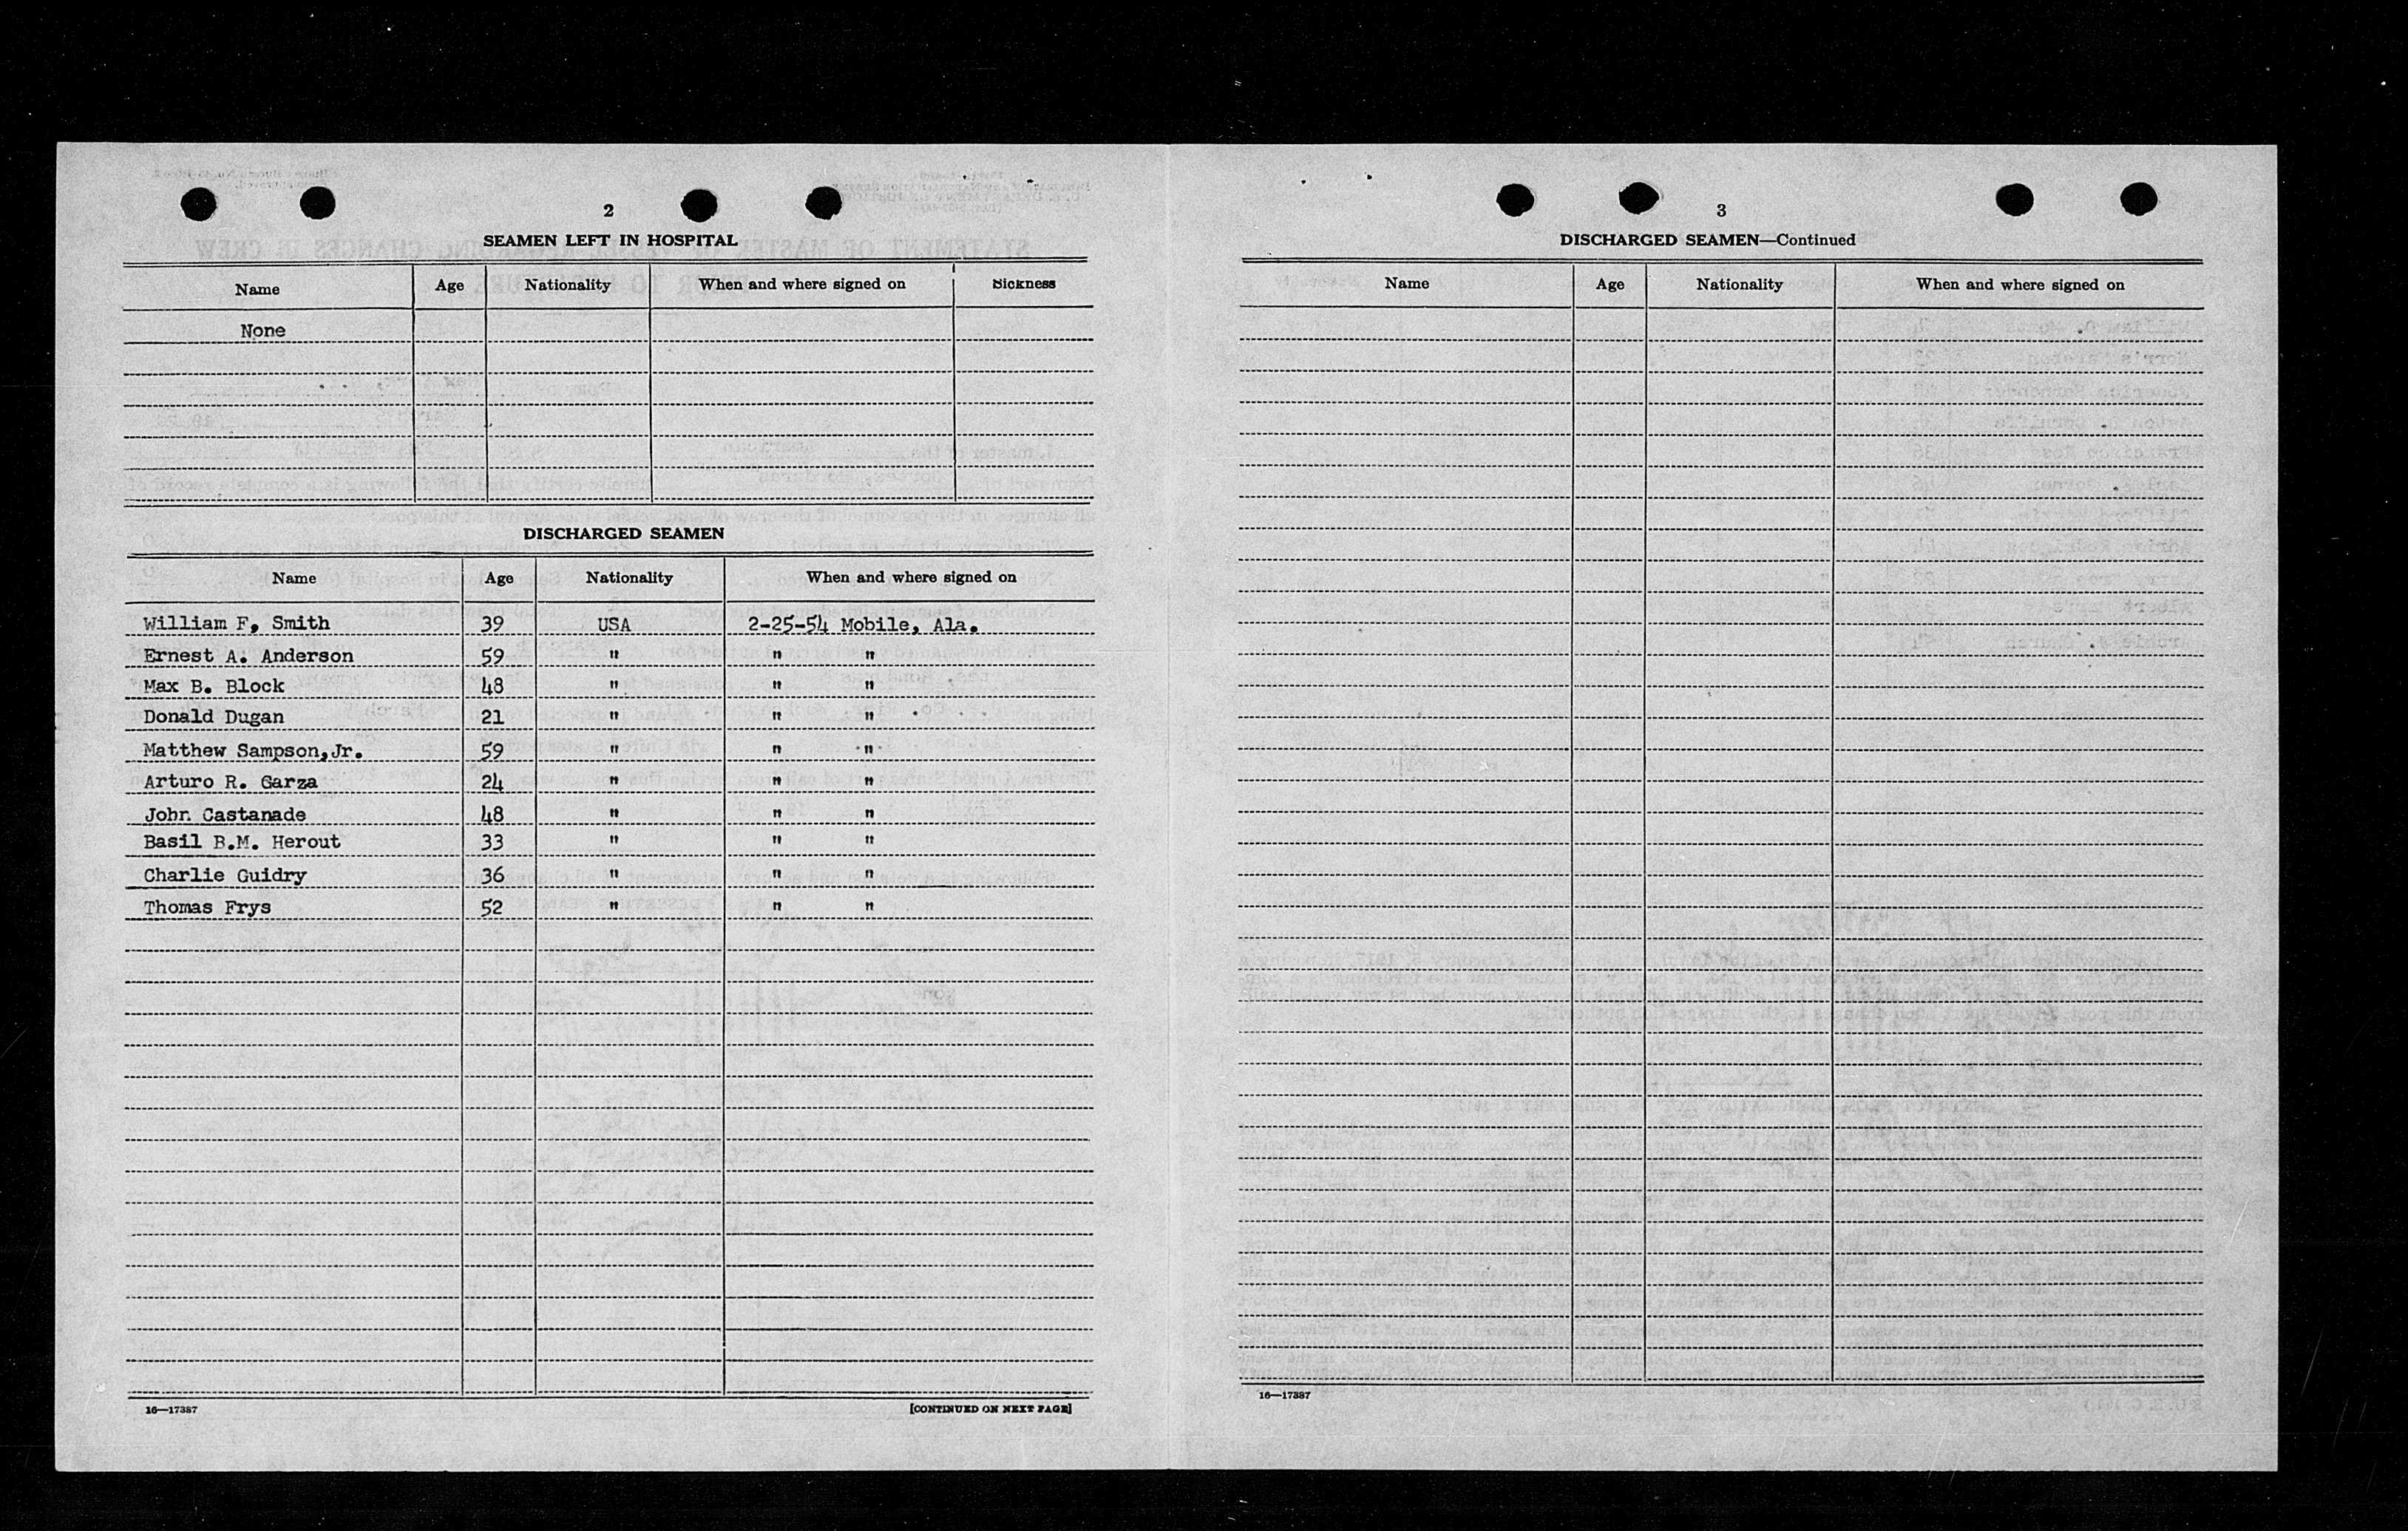 2
SEAMEN LEFT IN HOSPITAL
Name Age Nationality When and where signed on Sickness
None
DISCHARGED SEAMEN
Name Age Nationality When and where signed on
William F, Smith 39 USA 2-25-54 Mobile, Ala.
Ernest A. Anderson 59 " " "
Max B. Block 48 " " "
Donald Dugan 21 " " "
Matthew Sampson,Jr. 59 " " "
Arturo R. Garza 24 " " "
John Castanade 48 " " "
Basil B.M. Herout 33 " " "
Charlie Guidry 36 " " "
Thomas Frys 52 " " "
16—17387 [CONTINUED ON NEXT PAGE]
3
DISCHARGED SEAMEN—Continued
Name Age Nationality When and where signed on
16—17387